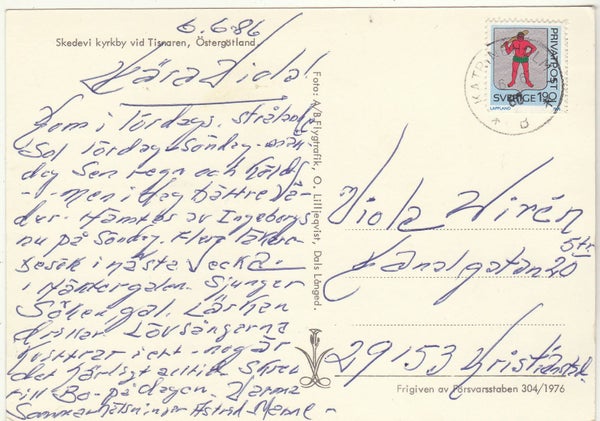 6.6.86
Skedevi kyrkby vid Tisnaren, Östergötland.
Kära Viola!
Kom i lördags. strålande
Sol lördag-Söndag-mån
dag Sen regn och kallt
- men i dag bättre Vä-
der. Hämtas av Ingeborg
nu på Söndag. Flera läkar-
besök i nästa Vecka.
i Näktergalen. Sjunger
Göken gal. Lärkan
drillar Lövsångerna
kvittrar i ett - nog är
det härligt alltid. Skrev
till Bo på dagen. Varma
Sommarhälsningar Astrid
Foto: A/B Flygtrafik, O. Lilljeqvist, Dals Långed
PRIVATPOST
SVERIGE 190
LAPPLAND
KATRINEHOLM
86
B
Viola Wirén
Kanalgatan 20 5tr
29153 Kristianstad
Frigiven av Försvarsstaben 304/1976